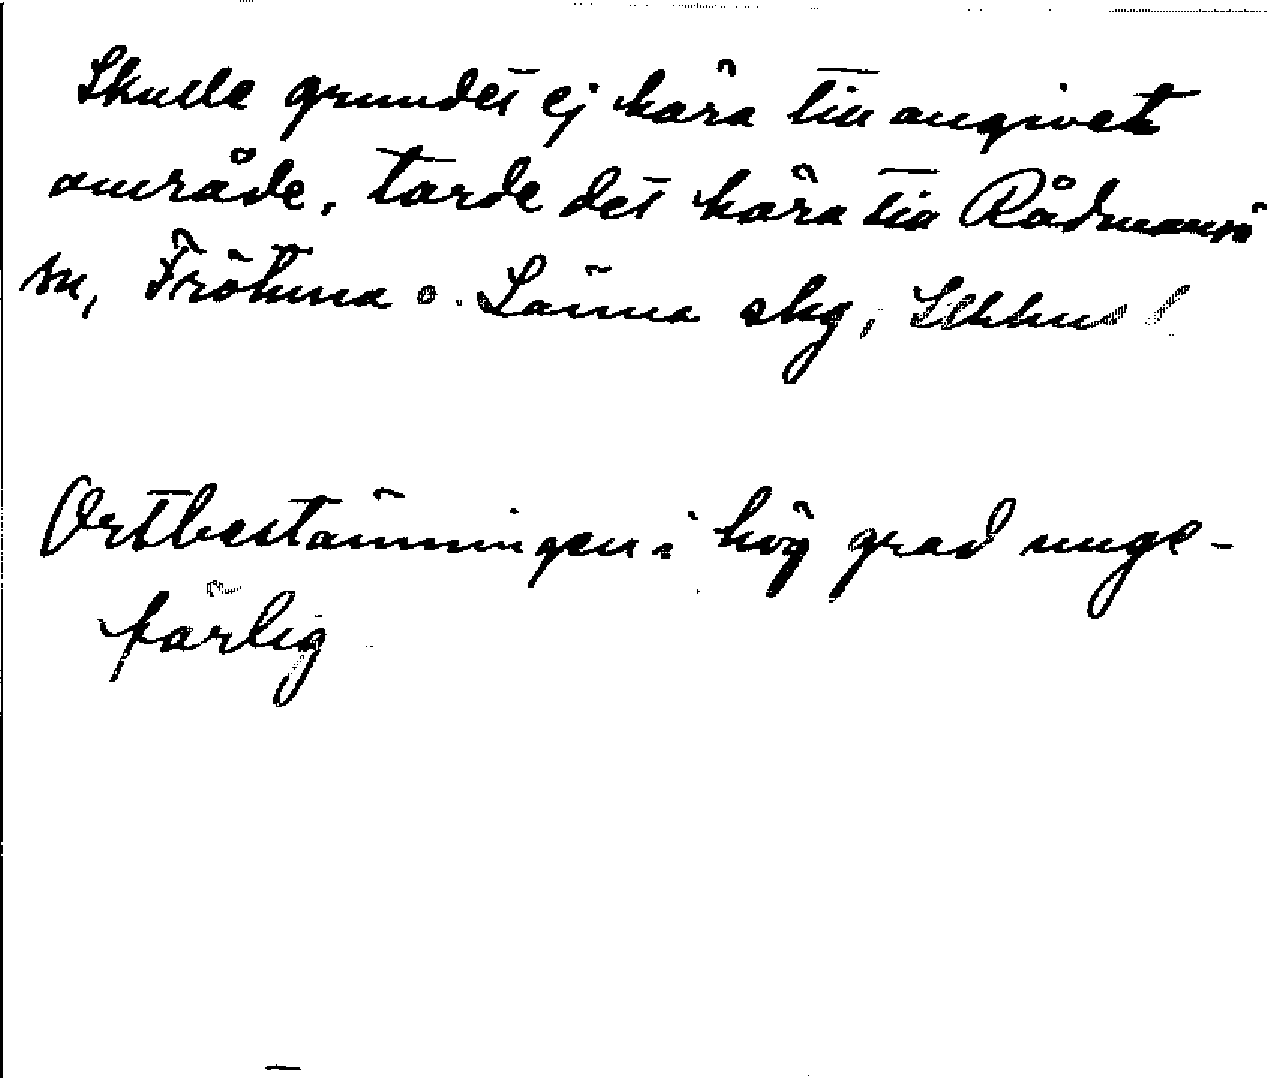 Skulle grundet ej höra till angivet
område, torde det höra till Rådmansö
sn, Frötuna o. Länna skg,
Ortbestämningen i hög grad unge-
färlig